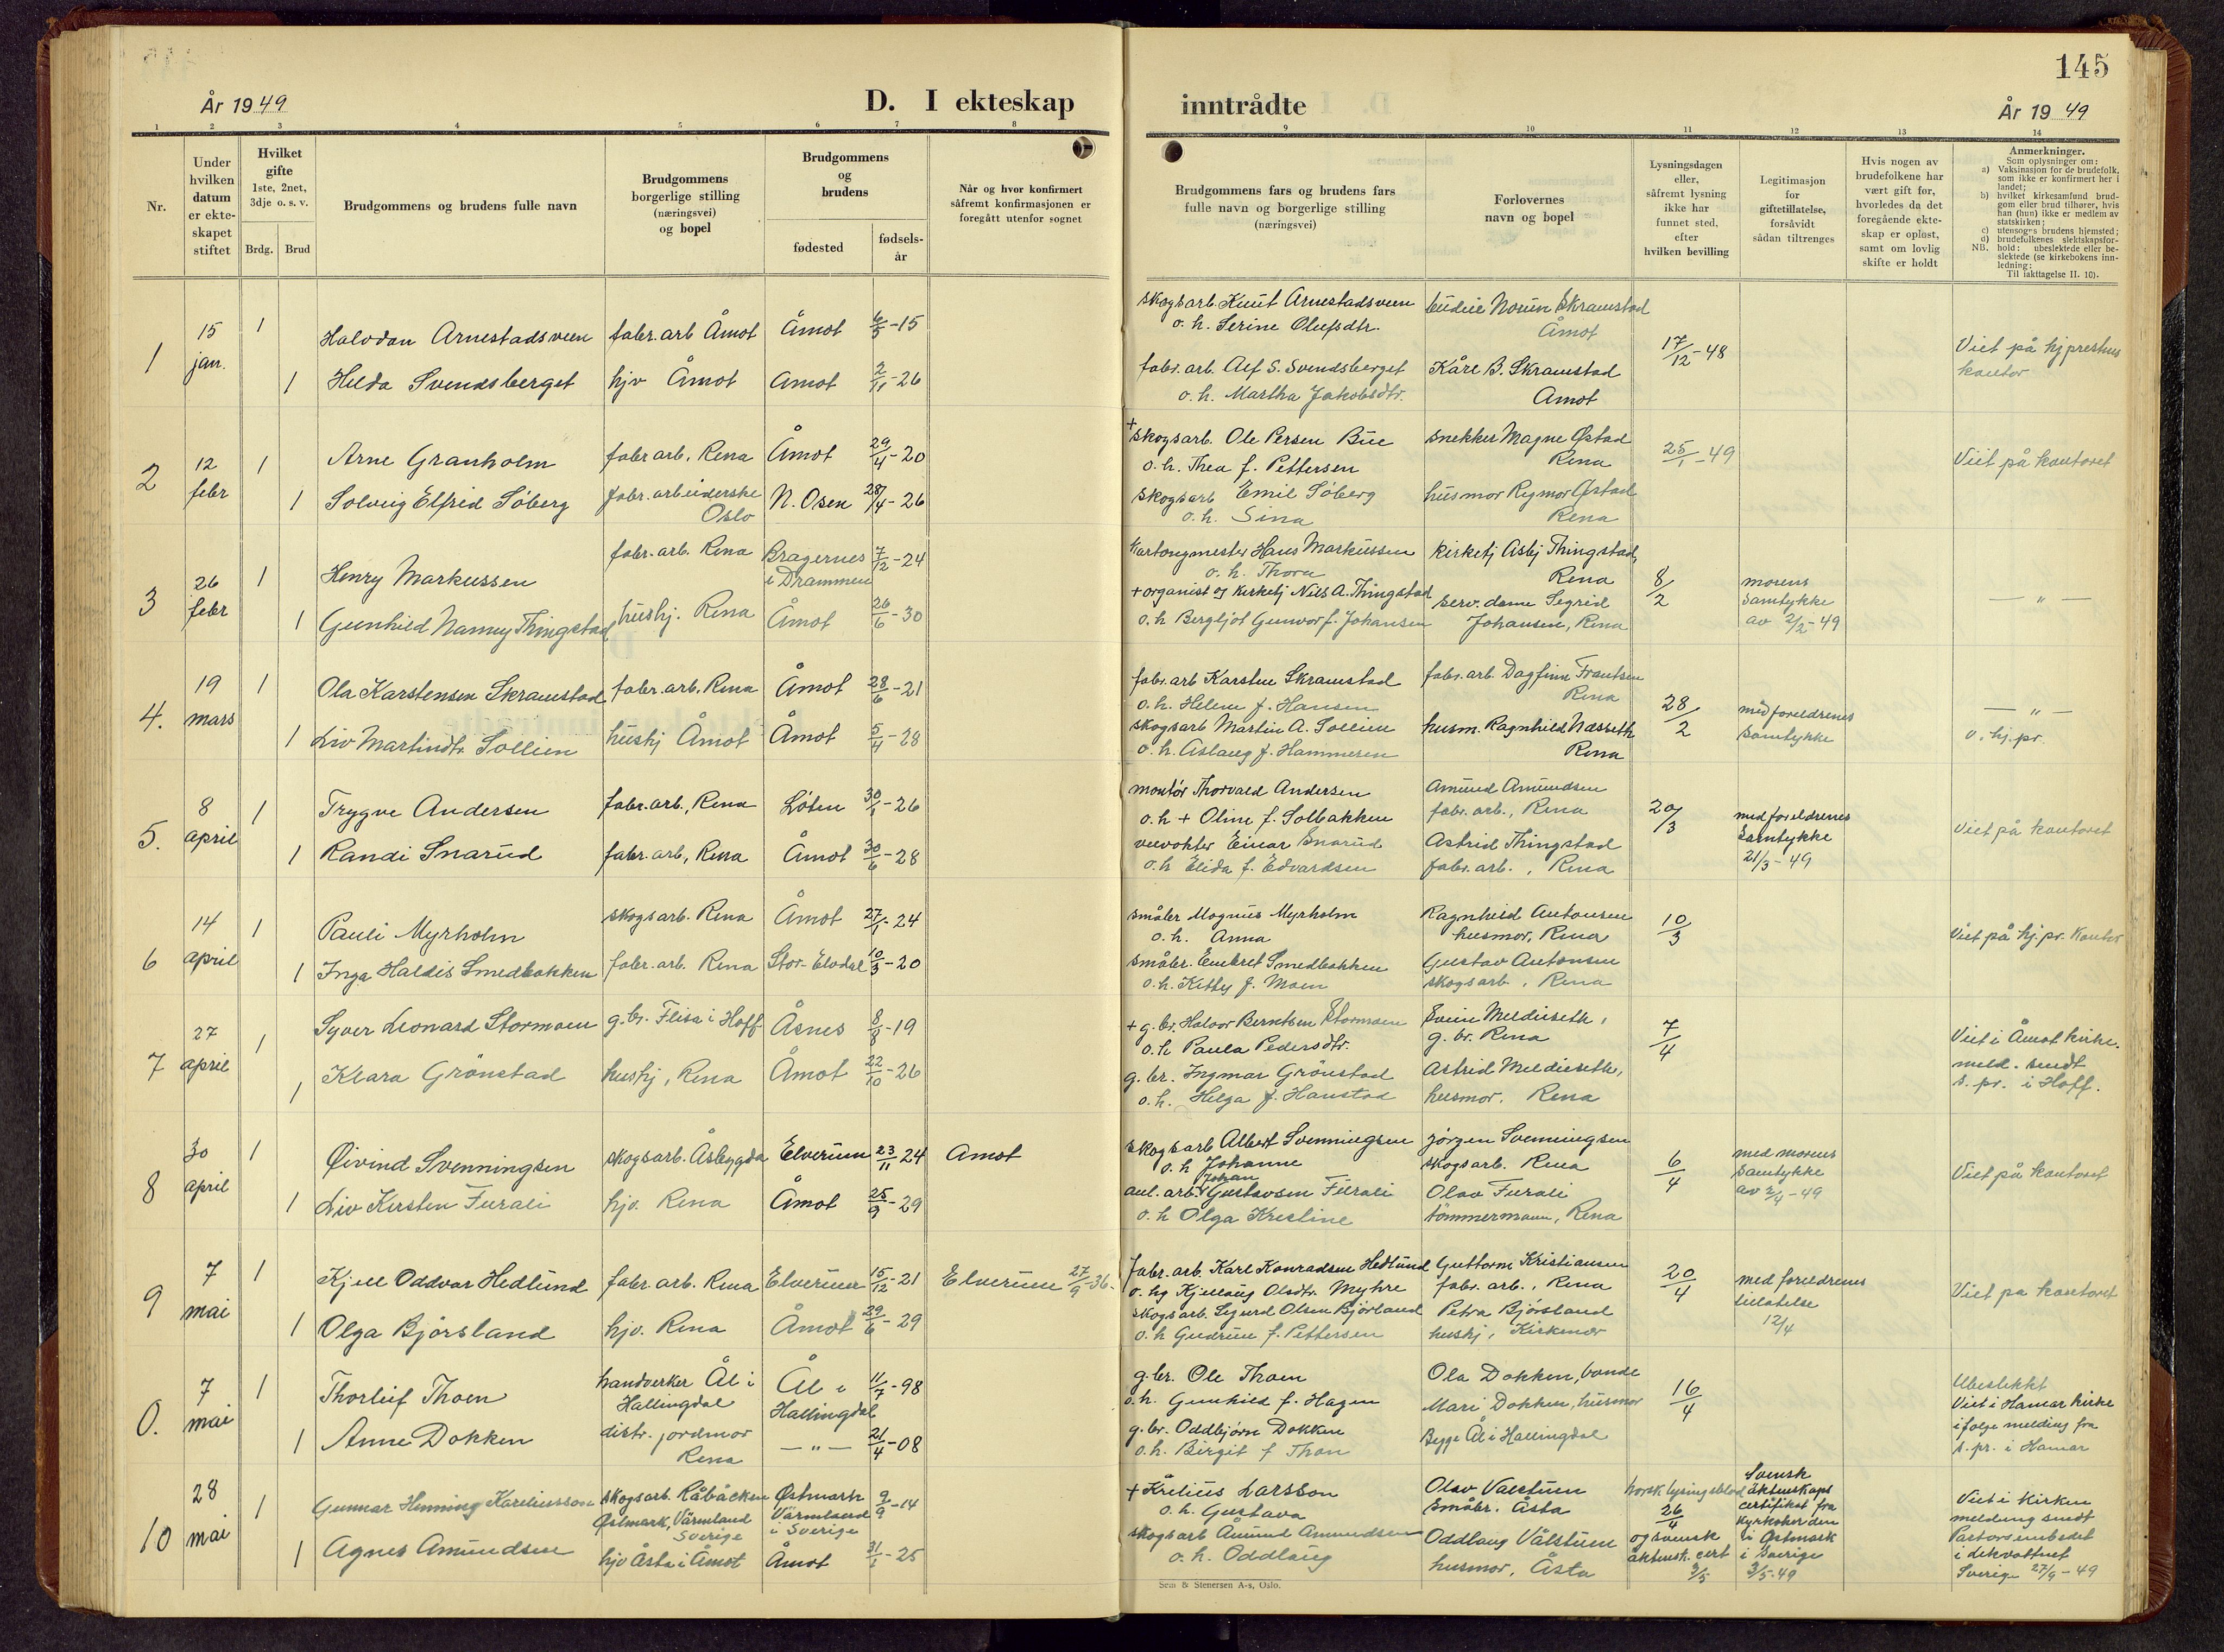 145
År 1949
D. I ekteskap
inntrådte
År 1949
1
2
3
4
5
6
7
8
9
10
11
12
13
14
Nr.
Under
hvilken
datum
er ekte-
skapet
stiftet
Hvilket
gifte
1ste, 2net,
3dje o. s. v.
Brdg. Brud
Brudgommens og brudens fulle navn
Brudgommens
borgerlige stilling
(næringsvei)
og bopel
Brudgommens
og
brudens
fødested
fødsels-
år
Når og hvor konfirmert
såfremt konfirmasjonen er
foregått utenfor sognet
Brudgommens fars og brudens fars
fulle navn og borgerlige stilling
(næringsvei)
Forlovernes
navn og bopel
Lysningsdagen
eller,
såfremt lysning
ikke har
funnet sted,
efter
hvilken bevilling
Legitimasjon
for
giftetillatelse,
forsåvidt
sådan tiltrenges
Hvis nogen av
brudefolkene har
vært gift før,
hvorledes da det
foregående ekte-
skap er opløst,
samt om lovlig
skifte er holdt
Anmerkninger.
Som oplysninger om:
a) Vaksinasjon for de brudefolk,
som ikke er konfirmert her i
landet;
b) hvilket kirkesamfund brud-
gom eller brud tilhører, hvis
han (hun) ikke er medlem av
statskirken;
c) utensogns brudens hjemsted;
d) brudefolkenes slektskapsfor-
NB. hold: ubeslektede eller be-
slektede (se kirkebokens inn-
ledning:
Til iakttagelse II. 10).
1
15
jan.
1
Halvdan Arnestadsveen
fabr. arb Åmot
Åmot
6/5-15
1
Hilda Svendsberget
hjv Åmot
Åmot
2/11-26
skogsarb. Knut Arnestadsveen
o. h. Serine Olufsdtr.
fabr. arb. Alf S. Svendsberget
o. h. Martha Jakobsdtr.
Norun Skramstad
Åmot
Kåre B. Skramstad
Åmot
17/12-48
Viet på hj prestens
kontor
2
12
febr
1
Arne Granholm
fabr arb. Rena
Åmot
29/4-20
1
Solveig Elfrid Söberg
fabr. arbeiderske
Oslo
N. Osen
28/4-26
+ skogsarb. Ole Persen Bue
o. h. Thea f. Pettersen
skogsarb Emil Söberg
o. h. Sina
snekker Magne Østad
Rena
husmor Rigmor Østad
Rena
25/1-49
Viet på kontoret
3
26
febr
1
Henry Markussen
fabr. arb. Rena
Bragernes
i Drammen
7/12-24
1
Gunhild Nanny Thingstad
hushj. Rena
Åmot
26/6-30
kartongmester Hans Markussen
o. h. Thora
+ organist og kirketj Nils A. Thingstad
o. h Bergljot Gunvor f. Johansen
kirketj Asbj Thingstad,
Rena
serv. dame Segrid
Johansen, Rena
8/2
morens
samtykke
av 2/2-49
— " —
4.
19
mars
1
Ola Karstensen Skramstad
fabr. arb. Rena
Åmot
28/6-21
1
Liv Martindtr. Sollien
hushj Åmot
Åmot
5/4-28
fabr. arb Karsten Skramstad
o. h. Helene f. Hansen
skogsarb Martin A. Sollien
o. h. Aslaug f. Hammeren
fabr. arb. Dagfinn Frantsen
Rena
husm. Ragnhild Næsseth
Rena
28/2
med foreldrenes
samtykke
— " —
v. hj. pr.
5.
8
april
1
Trygve Andersen
fabr. arb., Rena
Löten
30/1-26
1
Randi Snarud
fabr. arb, Rena
Åmot
30/6-28
montör Thorvald Andersen
o. h + Oline f. Solbakken
veivokter Einar Snarud
o. h Elida f. Edvardsen
Amund Amundsen
fabr. arb., Rena
Astrid Thingstad
fabr. arb., Rena
20/3
med foreldrenes
samtykke
21/3-49
Viet på kontoret
6
14
april
1
Pauli Myrholm
skogsarb. Rena
Åmot
27/1-24
1
Inga Haldis Smedbakken
fabr. arb. Rena
Stor-Elvdal
10/3-20
småbr Magnus Myrholm
o. h. Anna
småbr. Embret Smedbakken
o. h. Kitty f. Moen
Ragnhild Antonsen
husmor, Rena
Gustav Antonsen
skogsarb, Rena
10/3
Viet på hj. pr. kontor
7
27
april
1
Syver Leonard Stormoen
g. br. Flisa i Hoff
Åsnes
8/8-19
1
Klara Grönstad
hushj, Rena
Åmot
22/10-26
+ g. br. Halvor Berntsen Stormoen
o. h Paula Pedersdtr.
g. br. Ingmar Grönstad
o. h. Helga f. Hanstad
Svein Meldieseth,
g. br. Rena
Astrid Meldieseth,
husmor. Rena
7/4
Viet i Åmot kirke.
meld. sendt
s. pr. i Hoff.
8
30
april
1
Øivind Svenningsen
skogsarb. Åsbygda
Elverum
23/11-24
Åmot
1
Liv Kirsten Furali
hjv. Rena
Åmot
25/9-29
skogsarb Albert Svenningsen
o. h Johanne
Johan
anl. arb. Gustavsen Furali
o. h Olga Kristine
Jörgen Svenningsen
skogsarb. Rena
Olav Furali
tömmermann, Rena
6/4
med morens
samtykke
av 2/4-49
Viet på kontoret
9
7
mai
1
Kjell Oddvar Hedlund
fabr. arb. Rena
Elverum
15/12-21
Elverum 27/9-36.
1
Olga Björsland
hjv. Rena
Åmot
29/6-29
fabr. arb. Karl Konradsen Hedlund
o. hg Kjellaug Olsdtr. Myhre
skogsarb. Sigurd Olsen Björland
o. h Gudrun f. Pettersen
Guttorm Kristiansen
fabr. arb., Rena
Petra Björsland
hushj, Kirkemor
20/4
med foreldrenes
tillatelse
12/4
Viet på kontoret
0.
7
mai
1
Thorleif Thoen
handverker Ål i
Hallingdal
Ål i
Hallingdal
11/7-98
1
Anne Dokken
distr. jordmor
Rena
— " —
21/4-08
g. br. Ole Thoen
o. h. Gunhild f. Hagen
g. br. Oddbjörn Dokken
o. h. Birgit f Thon
Ola Dokken, bonde
Mari Dokken, husmor
Begge Ål i Hallingdal
16/4
Ubeslekkt
Viet i Hamar kirke
ifølge melding fra
s. pr. i Hamar
10
28
mai
1
Gunnar Henning Kareliusson
skogsarb. Råbäcken
Östmark, Värmland
Sverige
Östmark
Värmland
i Sverige
9/9-14
1
Agnes Amundsen
hjv Åsta i Åmot
Åmot
31/1-25
+ Krelius Larsson
o. h. Gustava
skogsarb Åmund Amundsen
o. h. Oddlaug
Olav Vaalstuen
småbr. Åsta
Oddlaug Vålstuen
husmor, Åsta
norsk lysingsblad
26/4
og svensk
äktensk. cert
3/5
Svensk
äktenskaps
certifikat fra
kyrkoherden
i Östmark
i Sverige
3/5-49
Viet i kirken
melding sendt
Pastorsembedet
i
Sverige 27/9-49
Sem & Stenersen A-s, Oslo.